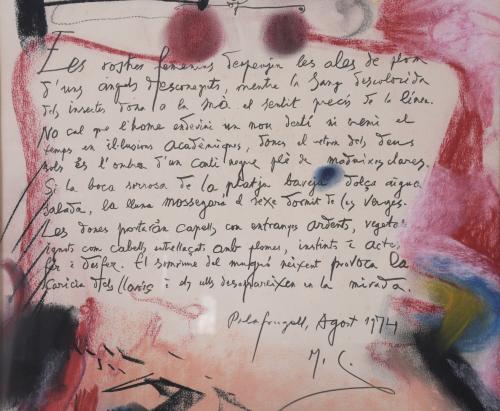 Les rostres femenins despengen les ales de plom
d'uns àngels desconeguts, mentre la sang descolorida
dels insectes dona a la mà el sentit precís de la línea.
No cal que l'home endevini un nou destí ni eremi el
temps en il·lusions acadèmiques, doncs el retorn dels deus
sols és l'ombra d'un conill negre ple de maduixes clares.
Si la boca sorrosa de la platja baveja dolça aigua
salada, la lluna mossegarà el sexe dormit de les verges.
Les dones portaràn capells com entranyes ardents, vegetals
ignots com cabells entrellaçats amb plomes, instints i actes,
fer i desfer. El somriure del mugró naixent provoca la
carícia dels llavis i els ulls desapareixen en la mirada.
Palafrugell, Agost 1974
M. C.